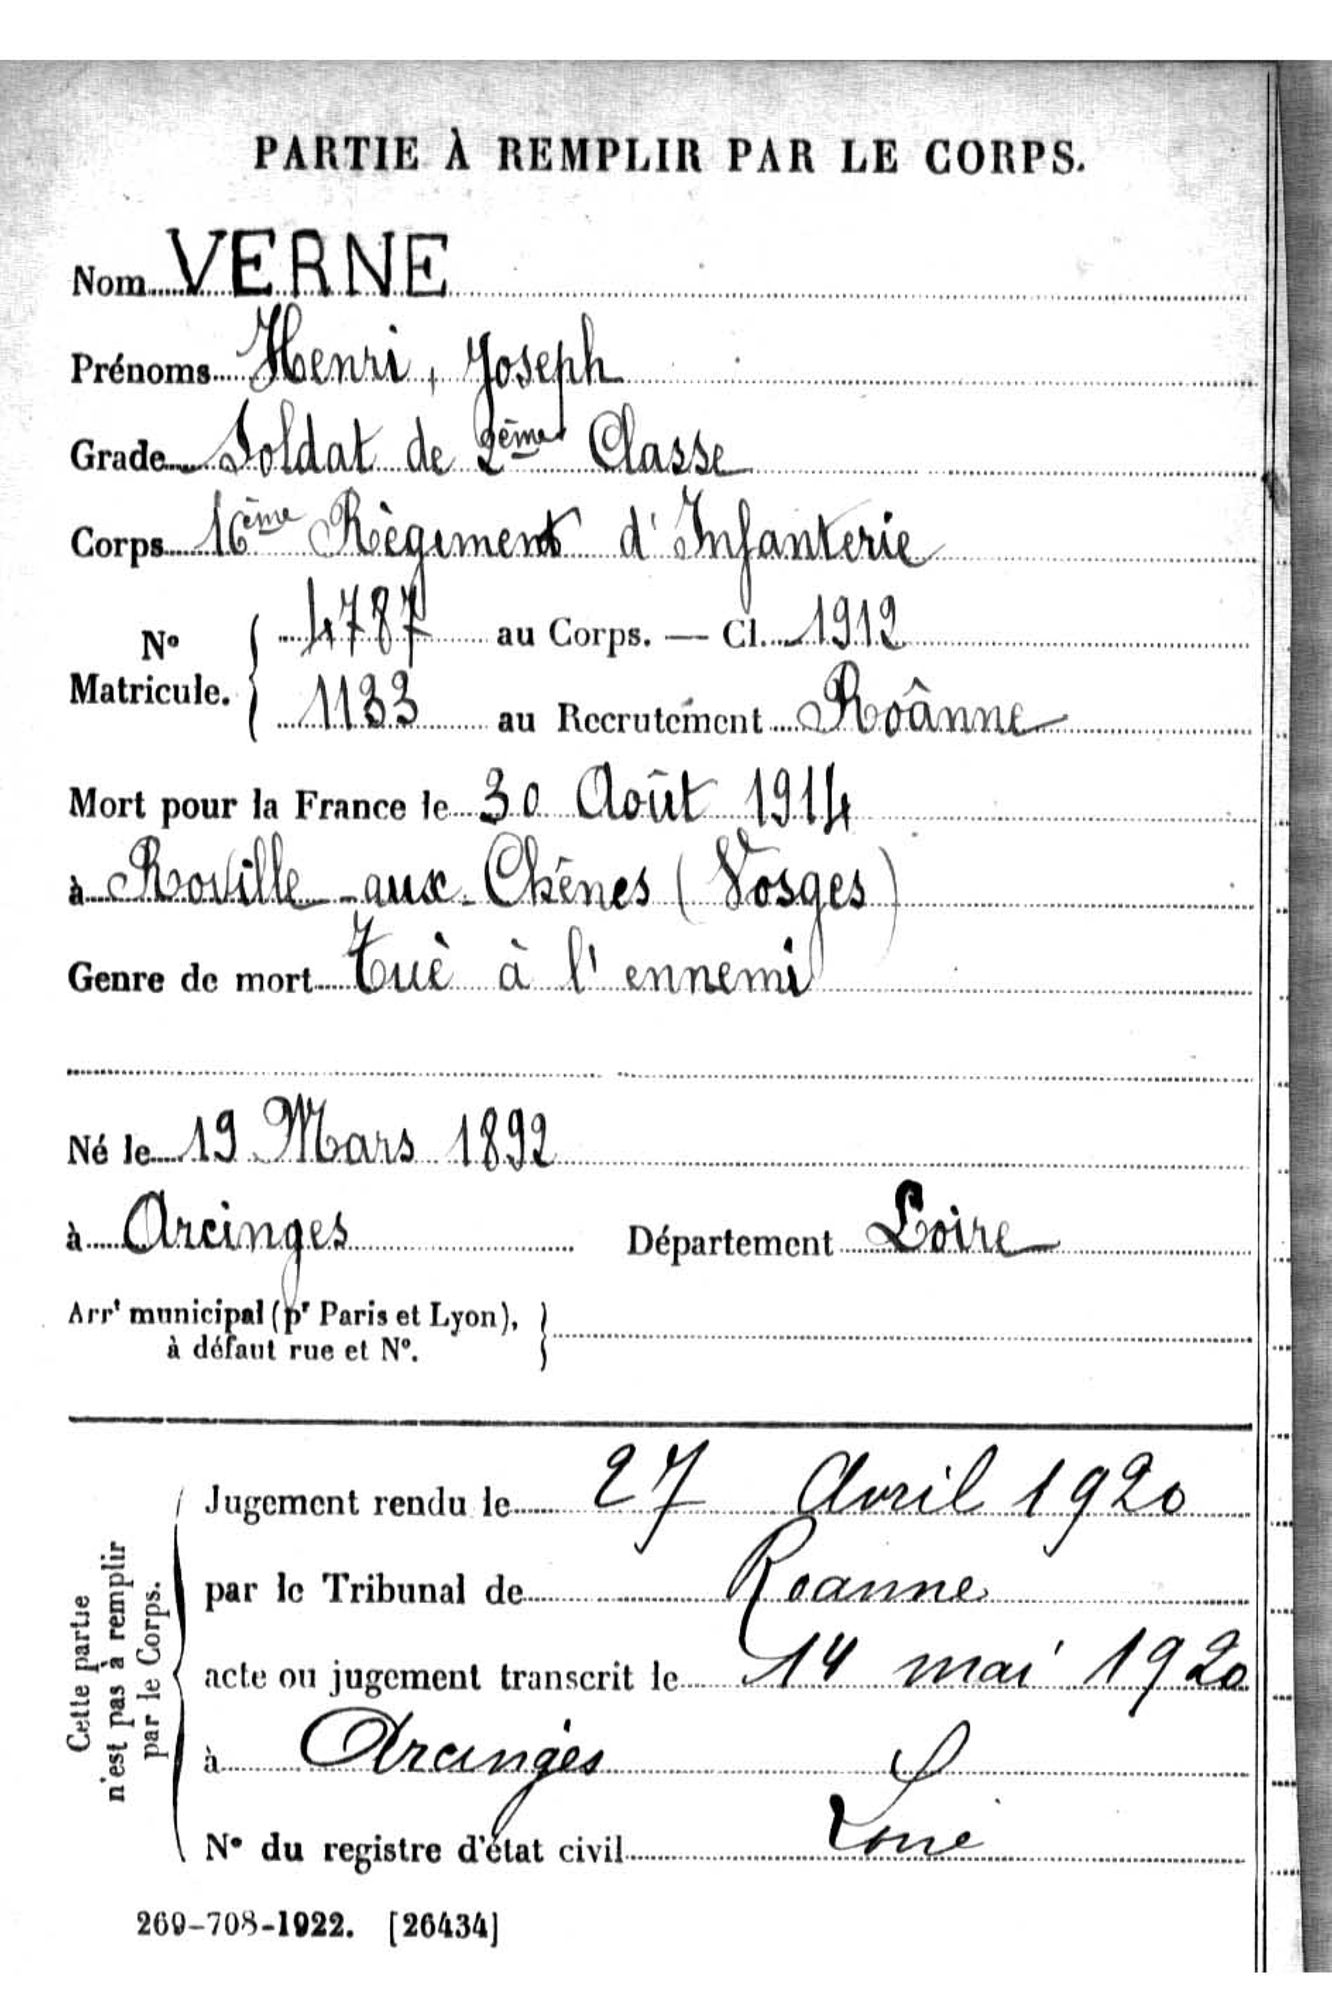 PARTIE À REMPLIR PAR LE CORPS.
Nom VERNE
Prénoms Henri, Joseph
Grade Soldat de 2ème Classe
Corps 16ème Règiment d'Infanterie
No Matricule. { 4787 au Corps. — Cl. 1912
1133 au Recrutement Roânne
Mort pour la France le 30 Août 1914
à Roville-aux-Chênes (Vosges)
Genre de mort Tuè à l'ennemi
Né le 19 Mars 1892
à Arcinges Département Loire
Arrt municipal (pr Paris et Lyon),
à défaut rue et No.
Cette partie
n'est pas à remplir
par le Corps.
Jugement rendu le 27 Avril 1920
par le Tribunal de Roanne
acte ou jugement transcrit le 14 mai 1920
à Arcinges
No du registre d'état civil Loire
269-708-1922. [26434]